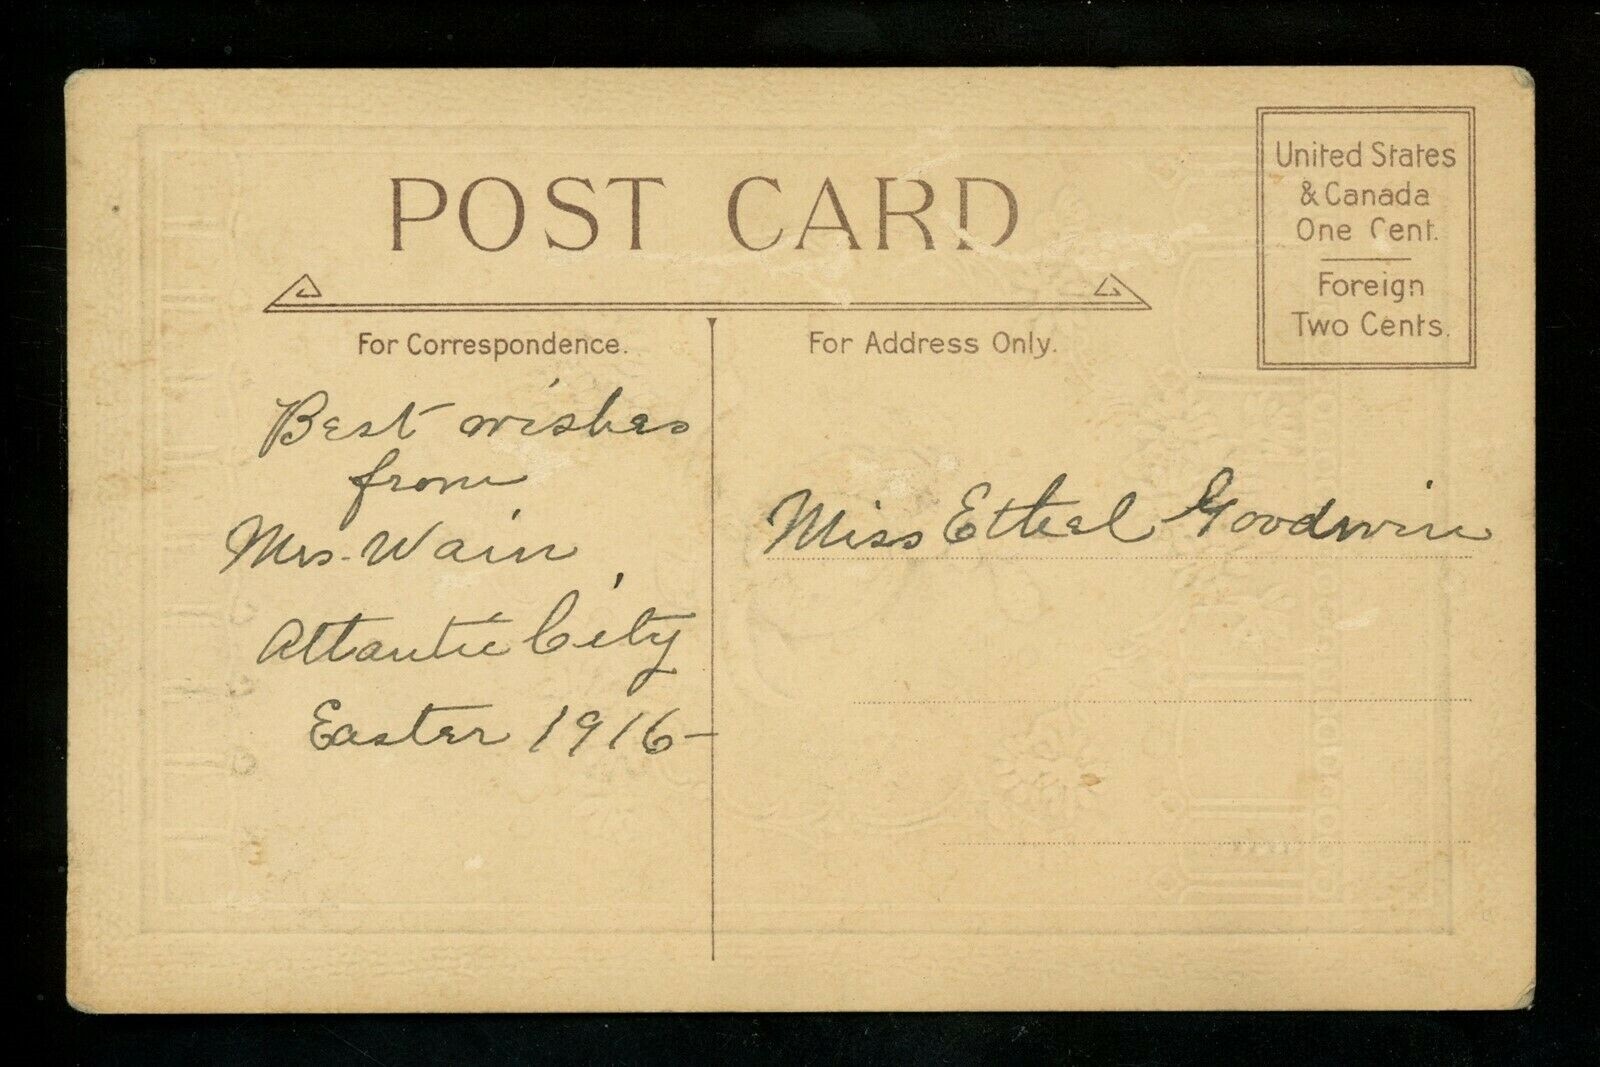 POST CARD
United States
& Canada
One Cent.
Foreign
Two Cents.
For Correspondence.
For Address Only.
Best wishes
from
Mrs. Wain
Atlantic City
Easter 1916-
Miss Ethel Goodwin